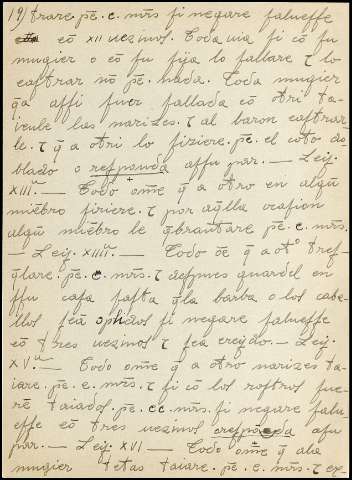 19) trare. pē. c. mr̄s. si negare salvesse
eō XII vezinos. Toda via si cō su
mugier o cō su fija lo fallare τ lo
castrar nō pē. nada. Toda mugier
q̄a assi fuer fallada cō otri ta-
ienle las narizes. τ al baron castrar
le. τ q̄ a otri lo fiziere. pē. el coto do
blado o responda assu par. — Ley.
XIIIª. — Todo om̄e q̄ a otro en algū
miēbro firiere. τ por aq̄lla ocasion
algū miēbro le q̄brantare pē. c. mr̄s.
— Ley. XIIIIª. — Todo ōe q̄ a otº tres-
q̄lare. pē. c. mr̄s. τ despues guardel en
ssu casa fasta q̄la barba o los cabe-
llos seā opidos si negare salvesse
cō tres vezinos τ sea creydo. — Ley.
XVª. — Todo om̄e q̄ a otro narizes ta-
iare. pē. c. mr̄s. τ si cō los rostros fue-
rē taiados. pē. cc. mr̄s. si negare salv-
esse cō tres vezinos o responda asu
par. — Ley. XVI — Todo om̄e q̄ ala
mugier tetas taiare. pē. c. mr̄s. τ ex-